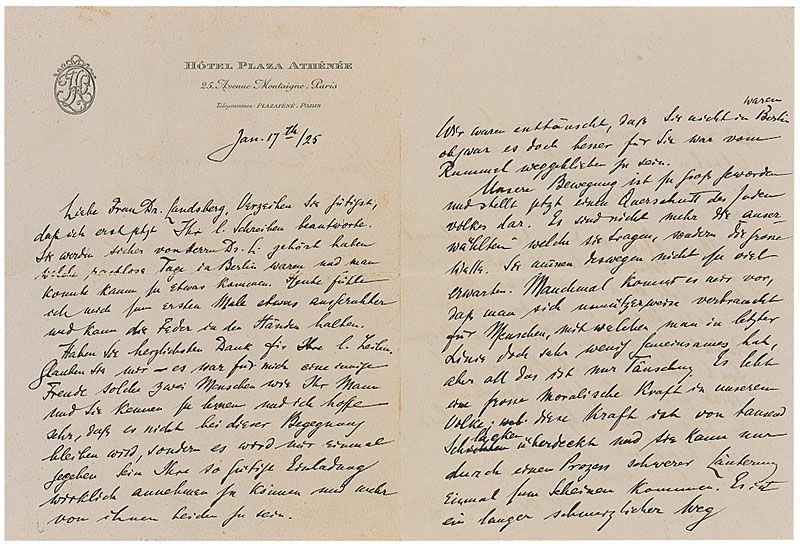 HÔTEL PLAZA ATHÉNÉE
25, Avenue Montaigne, Paris
Télégrammes: PLAZATÉNÉ. PARIS
Jan. 17th/25
Liebe Frau Dr. Landsberg, Verzeihen Sie gütigst,
daß ich erst jetzt Ihr l. Schreiben beantworte.
Sie werden sicher von Herrn Dr. L. gehört haben
welche rastlose Tage in Berlin waren und man
konnte kaum zu etwas kommen. Heute fühle
ich mich zum ersten Male etwas ausgeruhter
und kann die Feder in den Händen halten.
Haben Sie herzlichsten Dank für Ihre l. Zeilen,
Glauben Sie mir – es war für mich eine innige
Freude solche zwei Menschen wie Ihr Mann
und Sie kennen zu lernen und ich hoffe
sehr, daß es nicht bei dieser Begegnung
bleiben wird, sondern es wird mir einmal
gegeben sein Ihre so gütige Einladung
wirklich annehmen zu können und mehr
von ihnen beiden zu sein.
waren
Wir waren enttäuscht, daß Sie nicht in Berlin
obzwar es doch besser für Sie war vom
Rummel weggeblieben zu sein.
Unsere Bewegung ist zu groß geworden
und stellt jetzt einen Querschnitt des Juden
volkes dar. Es sind nicht mehr die auser
wählten welche sie tragen, sondern die grosse
Welle. Sie müssen deswegen nicht so viel
erwarten. Manchmal kommt es mir vor,
daß man sich unnützerweise verbraucht
für Menschen, mit welchen man in letzter
Linie doch sehr wenig Gemeinsames hat,
aber all das ist nur Täuschung. Es lebt
eine grosse moralische Kraft in unserem
Volke, diese Kraft ist von tausend
Schlacken überdeckt und sie kann nur
durch einen Prozess schwerer Läuterung
einmal zum Scheinen kommen. Es ist
ein langer schmerzlicher Weg